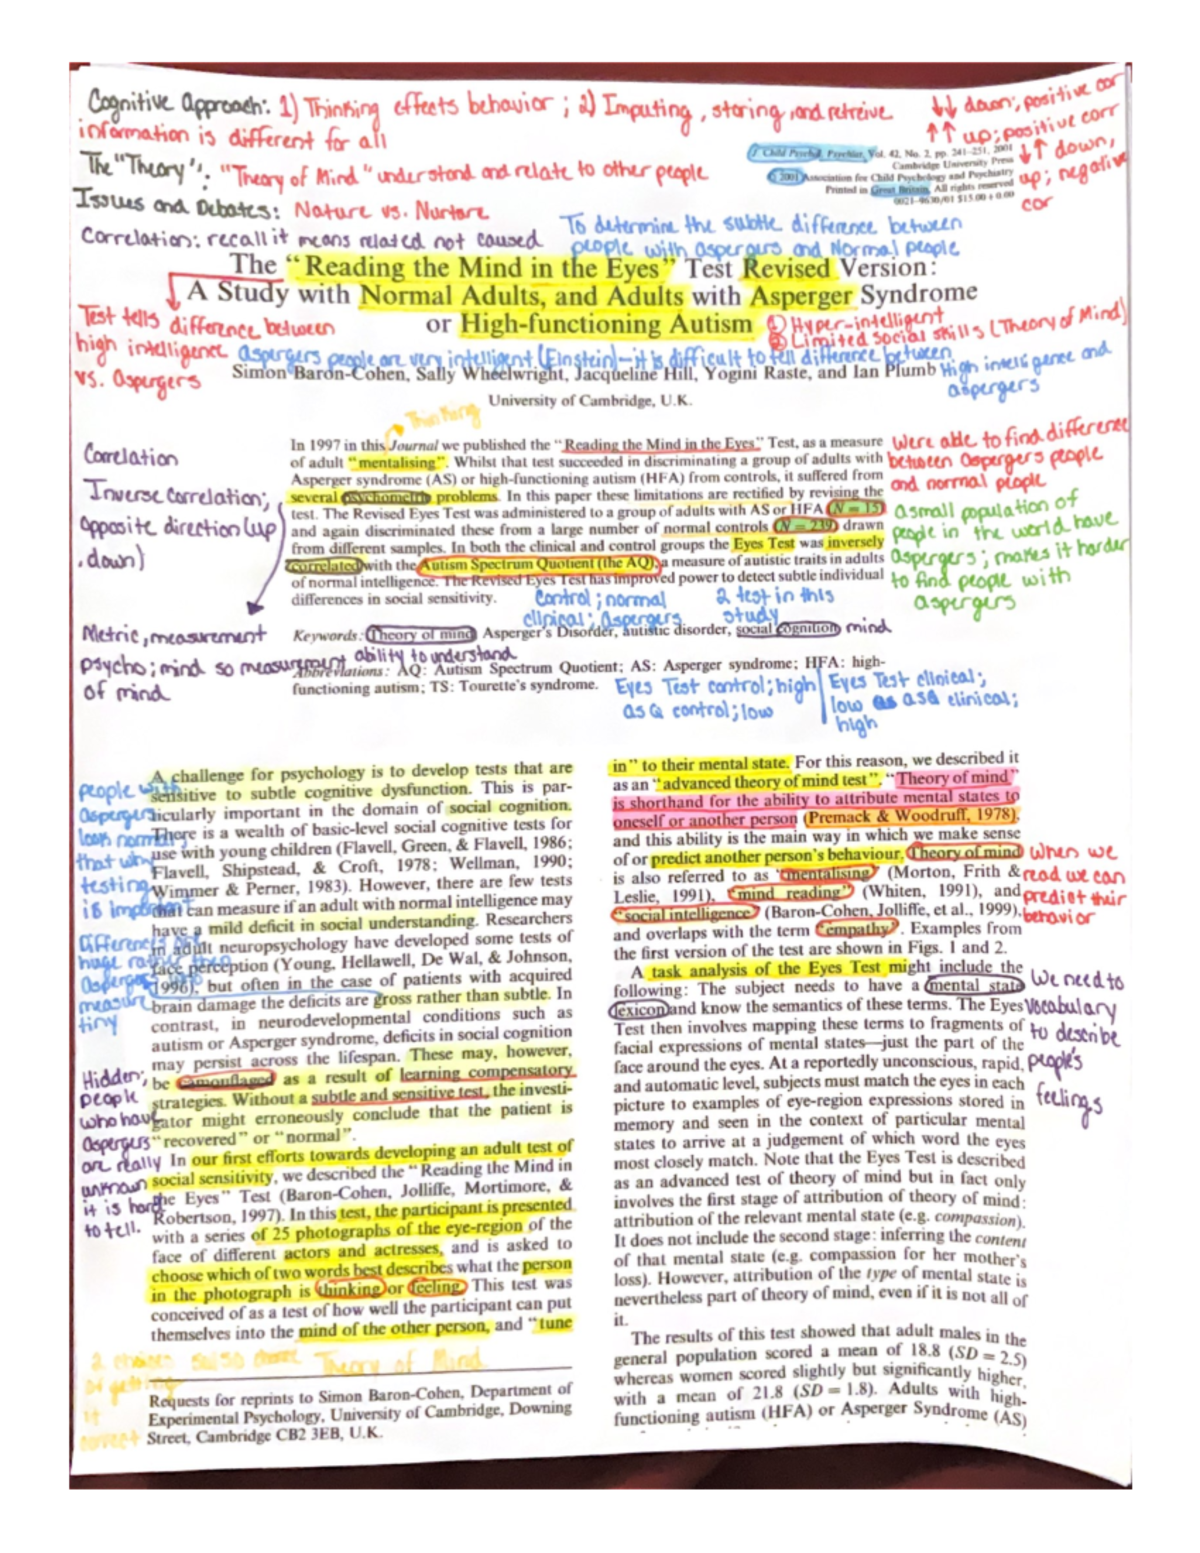 Cognitive Approach: 1) Thinking effects behavior ; 2) Imputing, storing, and retreive
information is different for all
The "Theory": "Theory of Mind" understand and relate to other people
Issues and Debates: Nature vs. Nurture
Correlation: recall it means related not caused
↓↓ down; positive cor
↑↑ up; positive corr
↓↑ down,
up; negative
cor
J. Child Psychol. Psychiat. Vol. 42, No. 2, pp. 241–251, 2001
Cambridge University Press
© 2001 Association for Child Psychology and Psychiatry
Printed in Great Britain. All rights reserved
0021–9630/01 $15.00 + 0.00
To determine the subtle difference between
people with aspergers and Normal people
The "Reading the Mind in the Eyes" Test Revised Version:
A Study with Normal Adults, and Adults with Asperger Syndrome
or High-functioning Autism
Test tells difference between
high intelligence
vs. Aspergers
1) Hyper-intelligent
2) Limited social skills (Theory of Mind)
Aspergers people are very intelligent (Einstein)-it is difficult to tell difference between
High intelligence and
aspergers
Simon Baron-Cohen, Sally Wheelwright, Jacqueline Hill, Yogini Raste, and Ian Plumb
University of Cambridge, U.K.
Thinking
In 1997 in this Journal we published the "Reading the Mind in the Eyes" Test, as a measure
of adult "mentalising". Whilst that test succeeded in discriminating a group of adults with
Asperger syndrome (AS) or high-functioning autism (HFA) from controls, it suffered from
several psychometric problems. In this paper these limitations are rectified by revising the
test. The Revised Eyes Test was administered to a group of adults with AS or HFA (N = 15)
and again discriminated these from a large number of normal controls (N = 239) drawn
from different samples. In both the clinical and control groups the Eyes Test was inversely
correlated with the Autism Spectrum Quotient (the AQ), a measure of autistic traits in adults
of normal intelligence. The Revised Eyes Test has improved power to detect subtle individual
differences in social sensitivity.
Correlation
Inverse Correlation;
opposite direction (up
, down)
Metric, measurement
psycho; mind so measurement
of mind
Were able to find difference
between aspergers people
and normal people
a small population of
people in the world have
aspergers; makes it harder
to find people with
aspergers
Control; normal
clinical; Aspergers
2 test in this
study
Keywords: Theory of mind, Asperger's Disorder, autistic disorder, social cognition
mind
ability to understand
Abbreviations: AQ: Autism Spectrum Quotient; AS: Asperger syndrome; HFA: high-
functioning autism; TS: Tourette's syndrome.
Eyes Test control; high
as Q control; low
Eyes Test clinical;
low as asq clinical;
high
A challenge for psychology is to develop tests that are
sensitive to subtle cognitive dysfunction. This is par-
ticularly important in the domain of social cognition.
There is a wealth of basic-level social cognitive tests for
use with young children (Flavell, Green, & Flavell, 1986;
Flavell, Shipstead, & Croft, 1978; Wellman, 1990;
Wimmer & Perner, 1983). However, there are few tests
that can measure if an adult with normal intelligence may
have a mild deficit in social understanding. Researchers
in adult neuropsychology have developed some tests of
face perception (Young, Hellawell, De Wal, & Johnson,
1996), but often in the case of patients with acquired
brain damage the deficits are gross rather than subtle. In
contrast, in neurodevelopmental conditions such as
autism or Asperger syndrome, deficits in social cognition
may persist across the lifespan. These may, however,
be camouflaged as a result of learning compensatory
strategies. Without a subtle and sensitive test, the investi-
gator might erroneously conclude that the patient is
"recovered" or "normal".
In our first efforts towards developing an adult test of
social sensitivity, we described the "Reading the Mind in
the Eyes" Test (Baron-Cohen, Jolliffe, Mortimore, &
Robertson, 1997). In this test, the participant is presented
with a series of 25 photographs of the eye-region of the
face of different actors and actresses, and is asked to
choose which of two words best describes what the person
in the photograph is thinking or feeling. This test was
conceived of as a test of how well the participant can put
themselves into the mind of the other person, and "tune
people with
Aspergers
look normal,
that why
testing
is important
Differences are
huge rather then
Aspergers
measure
tiny
Hidden;
people
who have
aspergers
are really
unknown
it is hard
to tell.
2 choices
of getting
it
correct
Theory of Mind
Requests for reprints to Simon Baron-Cohen, Department of
Experimental Psychology, University of Cambridge, Downing
Street, Cambridge CB2 3EB, U.K.
in" to their mental state. For this reason, we described it
as an "advanced theory of mind test". "Theory of mind"
is shorthand for the ability to attribute mental states to
oneself or another person (Premack & Woodruff, 1978),
and this ability is the main way in which we make sense
of or predict another person's behaviour. Theory of mind
is also referred to as "mentalising" (Morton, Frith &
Leslie, 1991), "mind reading" (Whiten, 1991), and
"social intelligence" (Baron-Cohen, Jolliffe, et al., 1999),
and overlaps with the term "empathy". Examples from
the first version of the test are shown in Figs. 1 and 2.
A task analysis of the Eyes Test might include the
following: The subject needs to have a mental state
lexicon and know the semantics of these terms. The Eyes
Test then involves mapping these terms to fragments of
facial expressions of mental states—just the part of the
face around the eyes. At a reportedly unconscious, rapid,
and automatic level, subjects must match the eyes in each
picture to examples of eye-region expressions stored in
memory and seen in the context of particular mental
states to arrive at a judgement of which word the eyes
most closely match. Note that the Eyes Test is described
as an advanced test of theory of mind but in fact only
involves the first stage of attribution of theory of mind:
attribution of the relevant mental state (e.g. compassion).
It does not include the second stage: inferring the content
of that mental state (e.g. compassion for her mother's
loss). However, attribution of the type of mental state is
nevertheless part of theory of mind, even if it is not all of
it.
The results of this test showed that adult males in the
general population scored a mean of 18.8 (SD = 2.5)
whereas women scored slightly but significantly higher,
with a mean of 21.8 (SD = 1.8). Adults with high-
functioning autism (HFA) or Asperger Syndrome (AS)
When we
read we can
predict their
behavior
We need to
Vocabulary
to describe
people's
feelings